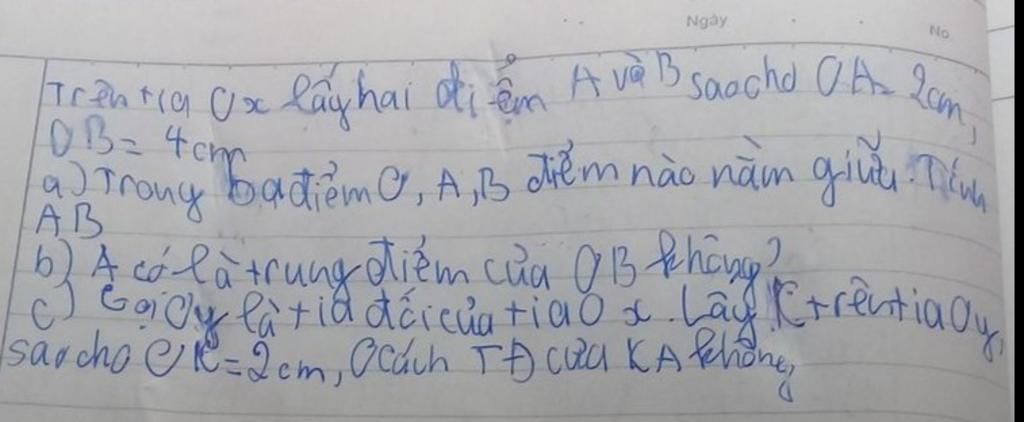 Ngày
No.
Trên tia Ox lấy hai điểm A và B sao cho OA = 2cm,
OB = 4cm
a) Trong ba điểm O, A, B điểm nào nằm giữa. Tính
AB
b) A có là trung điểm của OB không?
c) Gọi Oy là tia đối của tia Ox. Lấy K trên tia Oy,
sao cho OK = 2cm, O cách TĐ của KA không,